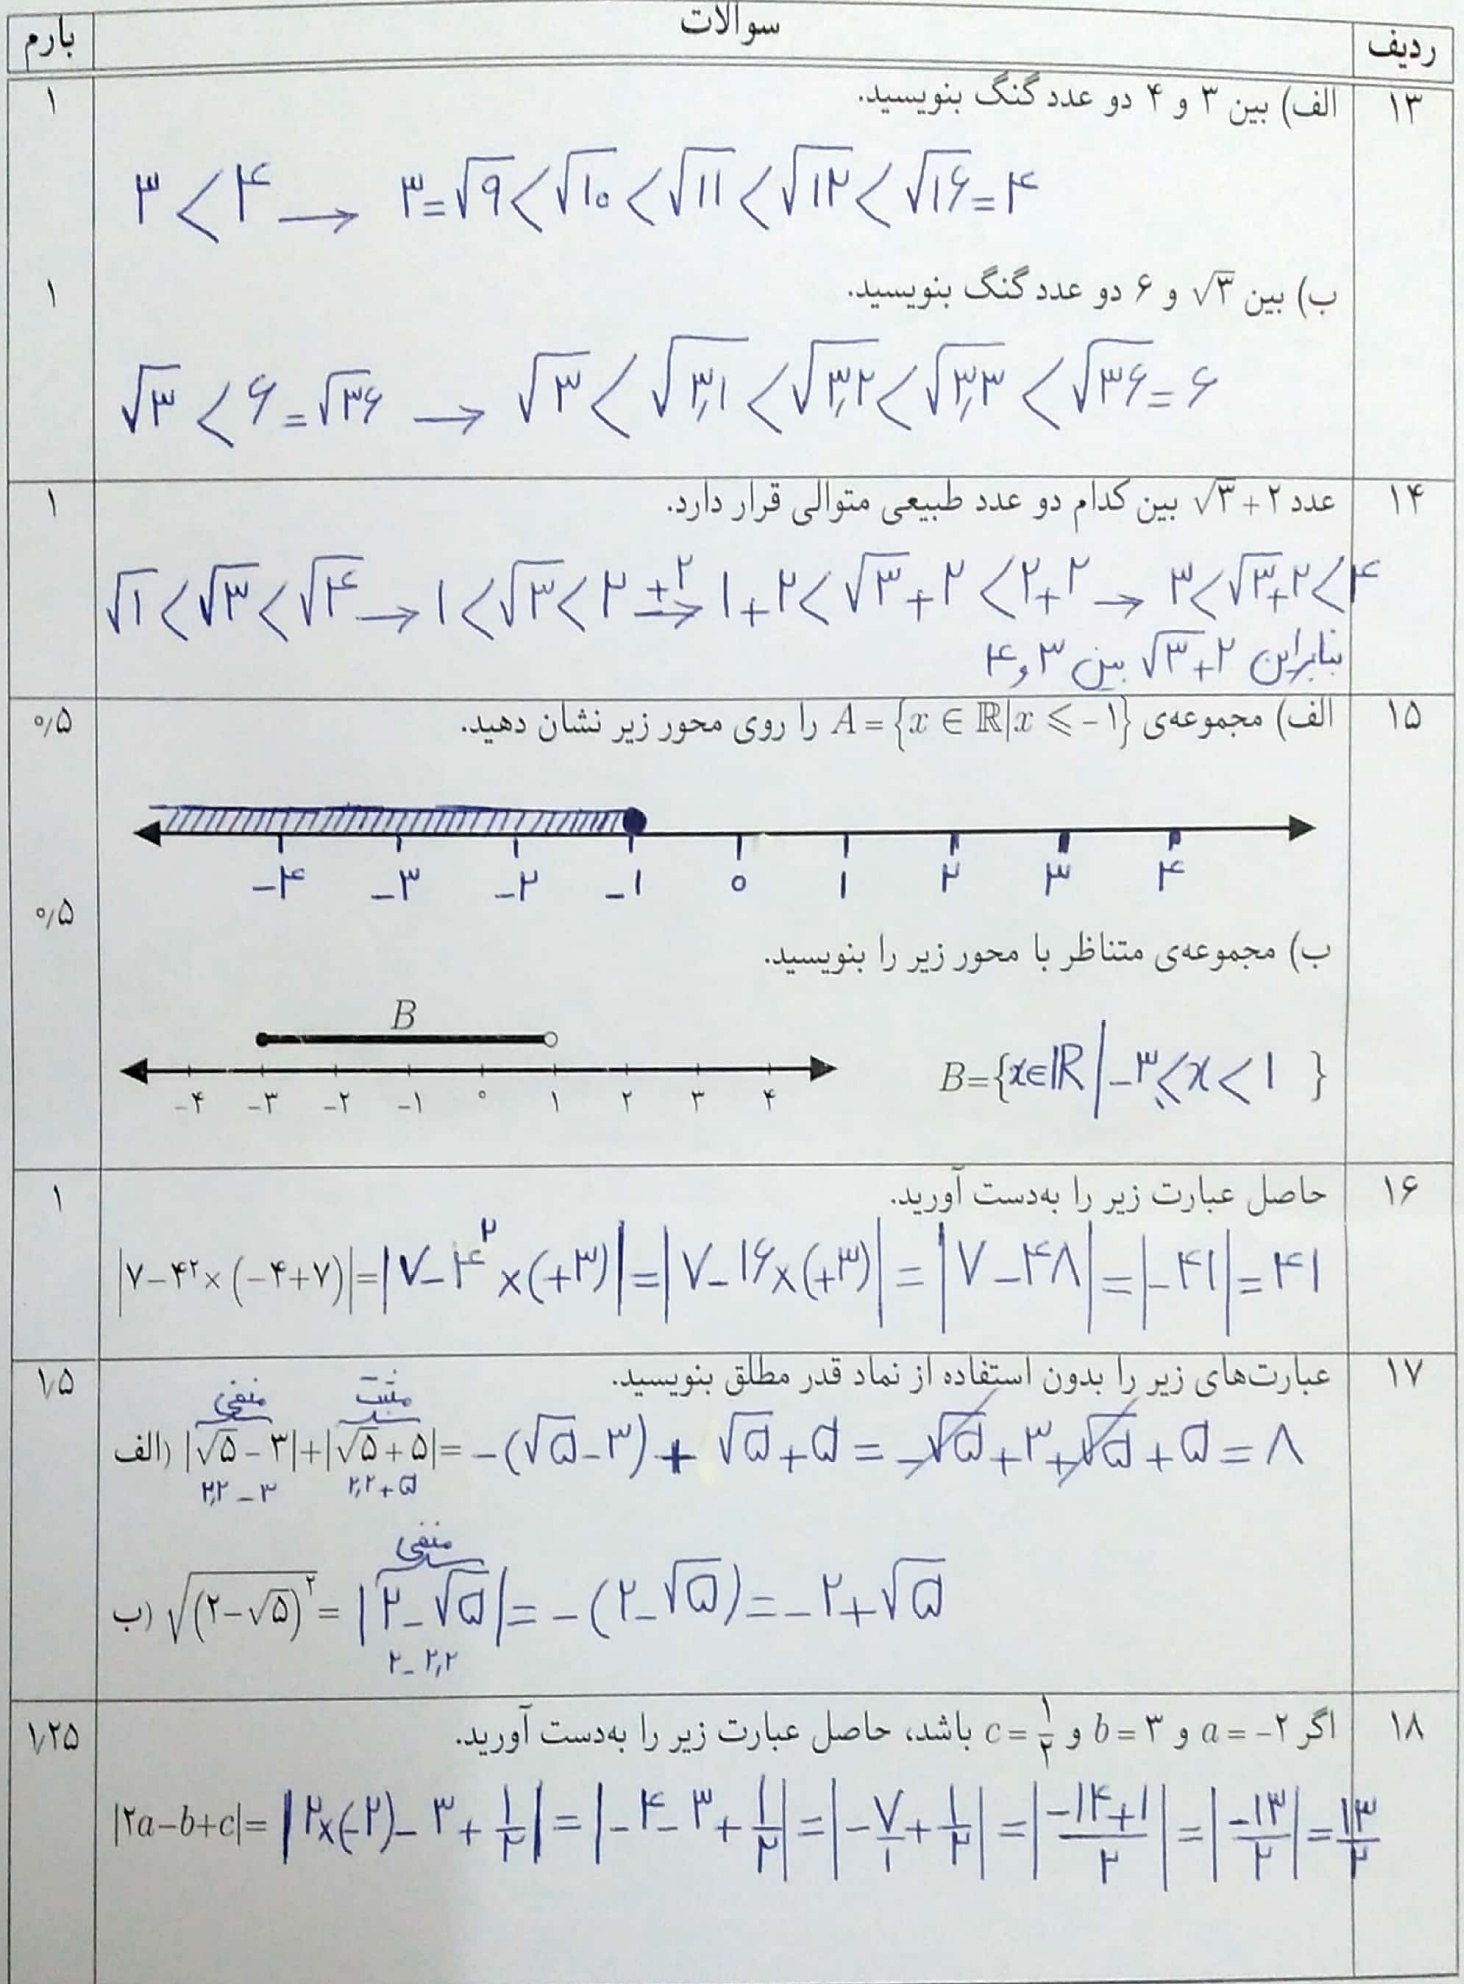 ردیف سوالات بارم
۱۳ الف) بین ۳ و ۴ دو عدد گنگ بنویسید. ۱
۳ < ۴ → ۳=√۹ < √۱۰ < √۱۱ < √۱۲ < √۱۶=۴
ب) بین √۳ و ۶ دو عدد گنگ بنویسید. ۱
√۳ < ۶=√۳۶ → √۳ < √۳٫۱ < √۳٫۲ < √۳٫۳ < √۳۶=۶
۱۴ عدد √۳+۲ بین کدام دو عدد طبیعی متوالی قرار دارد. ۱
√۱ < √۳ < √۴ → ۱ < √۳ < ۲ +۲→ ۱+۲ < √۳+۲ < ۲+۲ → ۳ < √۳+۲ < ۴
بنابراین √۳+۲ بین ۳ و ۴
۱۵ الف) مجموعه‌ی A={x ∈ ℝ|x ⩽ −۱} را روی محور زیر نشان دهید. ۰٫۵
−۴ −۳ −۲ −۱ ۰ ۱ ۲ ۳ ۴
ب) مجموعه‌ی متناظر با محور زیر را بنویسید. ۰٫۵
B
B={x∈ℝ | −۳⩽x<۱ }
−۴ −۳ −۲ −۱ ۰ ۱ ۲ ۳ ۴
۱۶ حاصل عبارت زیر را به‌دست آورید. ۱
|۷−۴²×(−۴+۷)|=|۷−۴²×(+۳)|=|۷−۱۶×(+۳)|=|۷−۴۸|=|−۴۱|=۴۱
۱۷ عبارت‌های زیر را بدون استفاده از نماد قدر مطلق بنویسید. ۱٫۵
منفی مثبت
الف) |√۵−۳|+|√۵+۵|=−(√۵−۳)+√۵+۵=−√۵+۳+√۵+۵=۸
۲٫۲−۳ ۲٫۲+۵
منفی
ب) √(۲−√۵)²=|۲−√۵|=−(۲−√۵)=−۲+√۵
۲−۲٫۲
۱۸ اگر a=−۲ و b=۳ و c=۱/۲ باشد، حاصل عبارت زیر را به‌دست آورید. ۱٫۲۵
|۲a−b+c|=|۲×(−۲)−۳+۱/۲|=|−۴−۳+۱/۲|=|−۷/۱+۱/۲|=|−۱۴+۱/۲|=|−۱۳/۲|=۱۳/۲